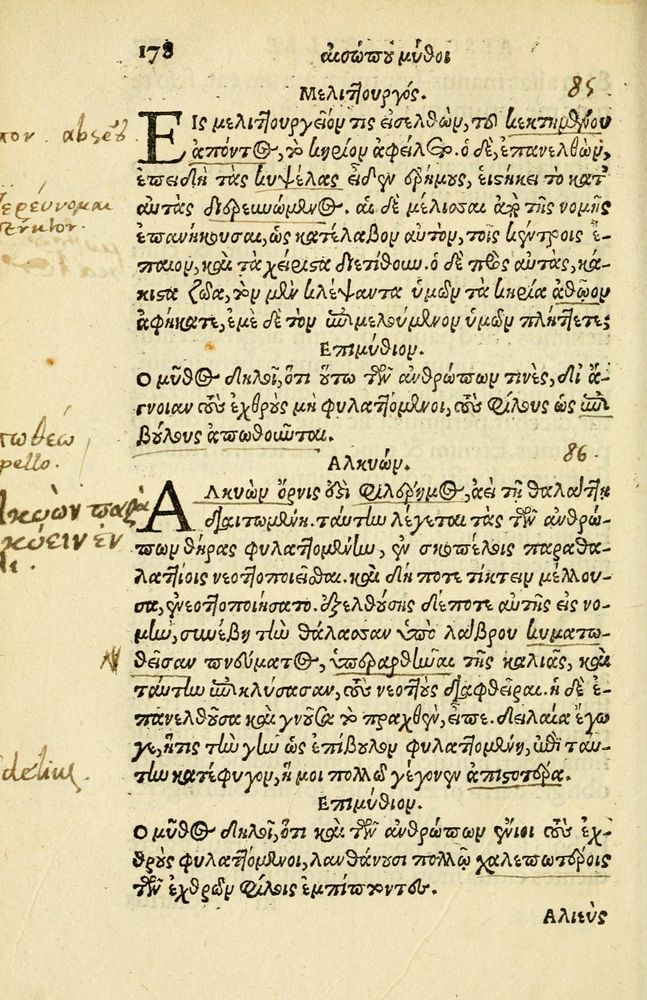 178 αἰσώπου μῦθοι
Μελιττουργός. 85
Εἰς μελιττουργεῖον τις εἰσελθὼν, τοῦ κεκτημένου
ἀπόντος, τὸ κηρίον ἀφείλετο. ὁ δὲ, ἐπανελθὼν,
ἐπειδὴ τὰς κυψέλας εἶδεν ἐρήμους, εἱστήκει τὸ κατ'
αὐτὰς διερευνώμενος. αἱ δὲ μέλισσαι ἀπὸ τῆς νομῆς
ἐπανήκουσαι, ὡς κατέλαβον αὐτὸν, τοῖς κέντροις ἔ-
παιον, καὶ τὰ χείριστα διετίθουν. ὁ δὲ πρὸς αὐτὰς, κά-
κιστα ζῶα, τὸν μὲν κλέψαντα ὑμῶν τὰ κηρία ἀθῶον
ἀφήκατε, ἐμὲ δὲ τὸν ἐπιμελούμενον ὑμῶν πλήττετε;
Επιμύθιον.
Ο μῦθος δηλοῖ, ὅτι οὕτω τῶν ἀνθρώπων τινὲς, δι' ἄ-
γνοιαν τοὺς ἐχθροὺς μὴ φυλαττόμενοι, τοὺς φίλους ὡς ἐπι-
βούλους ἀπωθοῦνται.
Αλκυών. 86
Αλκυὼν ὄρνις ἐστὶ φιλέρημος, ἀεὶ τῇ θαλάττῃ
διαιτωμένη. ταύτην λέγεται τὰς τῶν ἀνθρώ-
πων θήρας φυλαττομένην, ἐν σκοπέλοις παραθα-
λαττίοις νεοττοποιεῖσθαι. καὶ δή ποτε τίκτειν μέλλου-
σα, ἐνεοττοποιήσατο. ἐξελθούσης δέποτε αὐτῆς εἰς νο-
μὴν, συνέβη τὴν θάλασσαν ὑπὸ λάβρου κυματω-
θεῖσαν πνεύματος, ὑπεραρθῆναι τῆς καλιᾶς, καὶ
ταύτην ἐπικλύσασαν, τοὺς νεοττοὺς διαφθεῖραι. ἡ δὲ ἐ-
πανελθοῦσα καὶ γνοῦσα τὸ πραχθὲν, εἶπε. δειλαία ἔγω
γε, ἥτις τὴν γῆν ὡς ἐπίβουλον φυλαττομένη, ἐπὶ ταύ-
την κατέφυγον, ἥ μοι πολλῶ γέγονεν ἀπιστοτέρα.
Επιμύθιον.
Ο μῦθος δηλοῖ, ὅτι καὶ τῶν ἀνθρώπων ἔνιοι τοὺς ἐχ-
θροὺς φυλαττόμενοι, λανθάνουσι πολλῷ χαλεπωτέροις
τῶν ἐχθρῶν φίλοις ἐμπίπτοντες.
Αλιεὺς